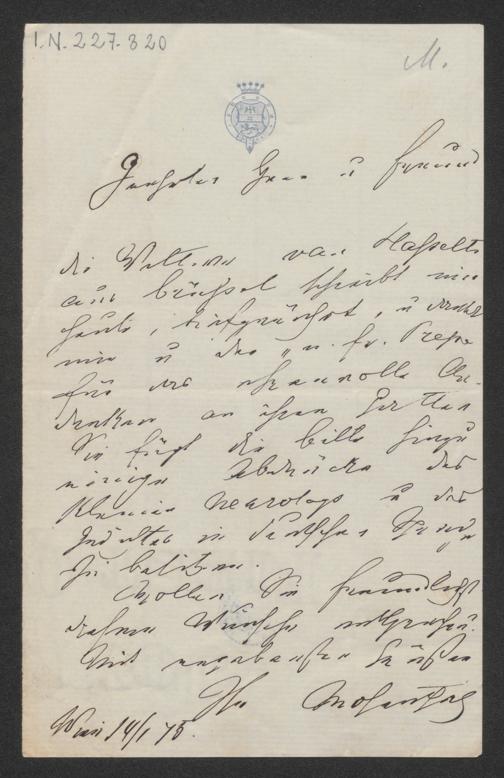 I.N. 227.320
M.
Geehrter Herr u Freund
die Wittwe van Hasselts
aus Brüssel schreibt mir
heute, tiefgerührt, u dankt
mir u der „n. fr. Presse
für das ehrenvolle An-
denken an ihren Gatten
Sie fügt die bitte hinzu
einige Abdrücke des
kleinen Necrologs u des
in deutscher
zu besitzen.
Wollen Sie freundlichst
diesem Wunsche
Mit ergebensten Grüßen
Ihr Mosenthal
Wien 14/1 75.